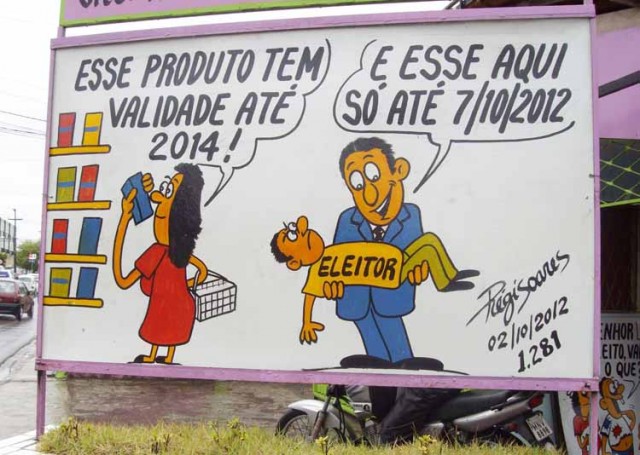 ESSE PRODUTO TEM
VALIDADE ATÉ
2014!
E ESSE AQUI
SÓ ATÉ 7/10/2012
ELEITOR
Regisoares
02/10/2012
1.281
ENHOR
EITO, VA
O QUE?